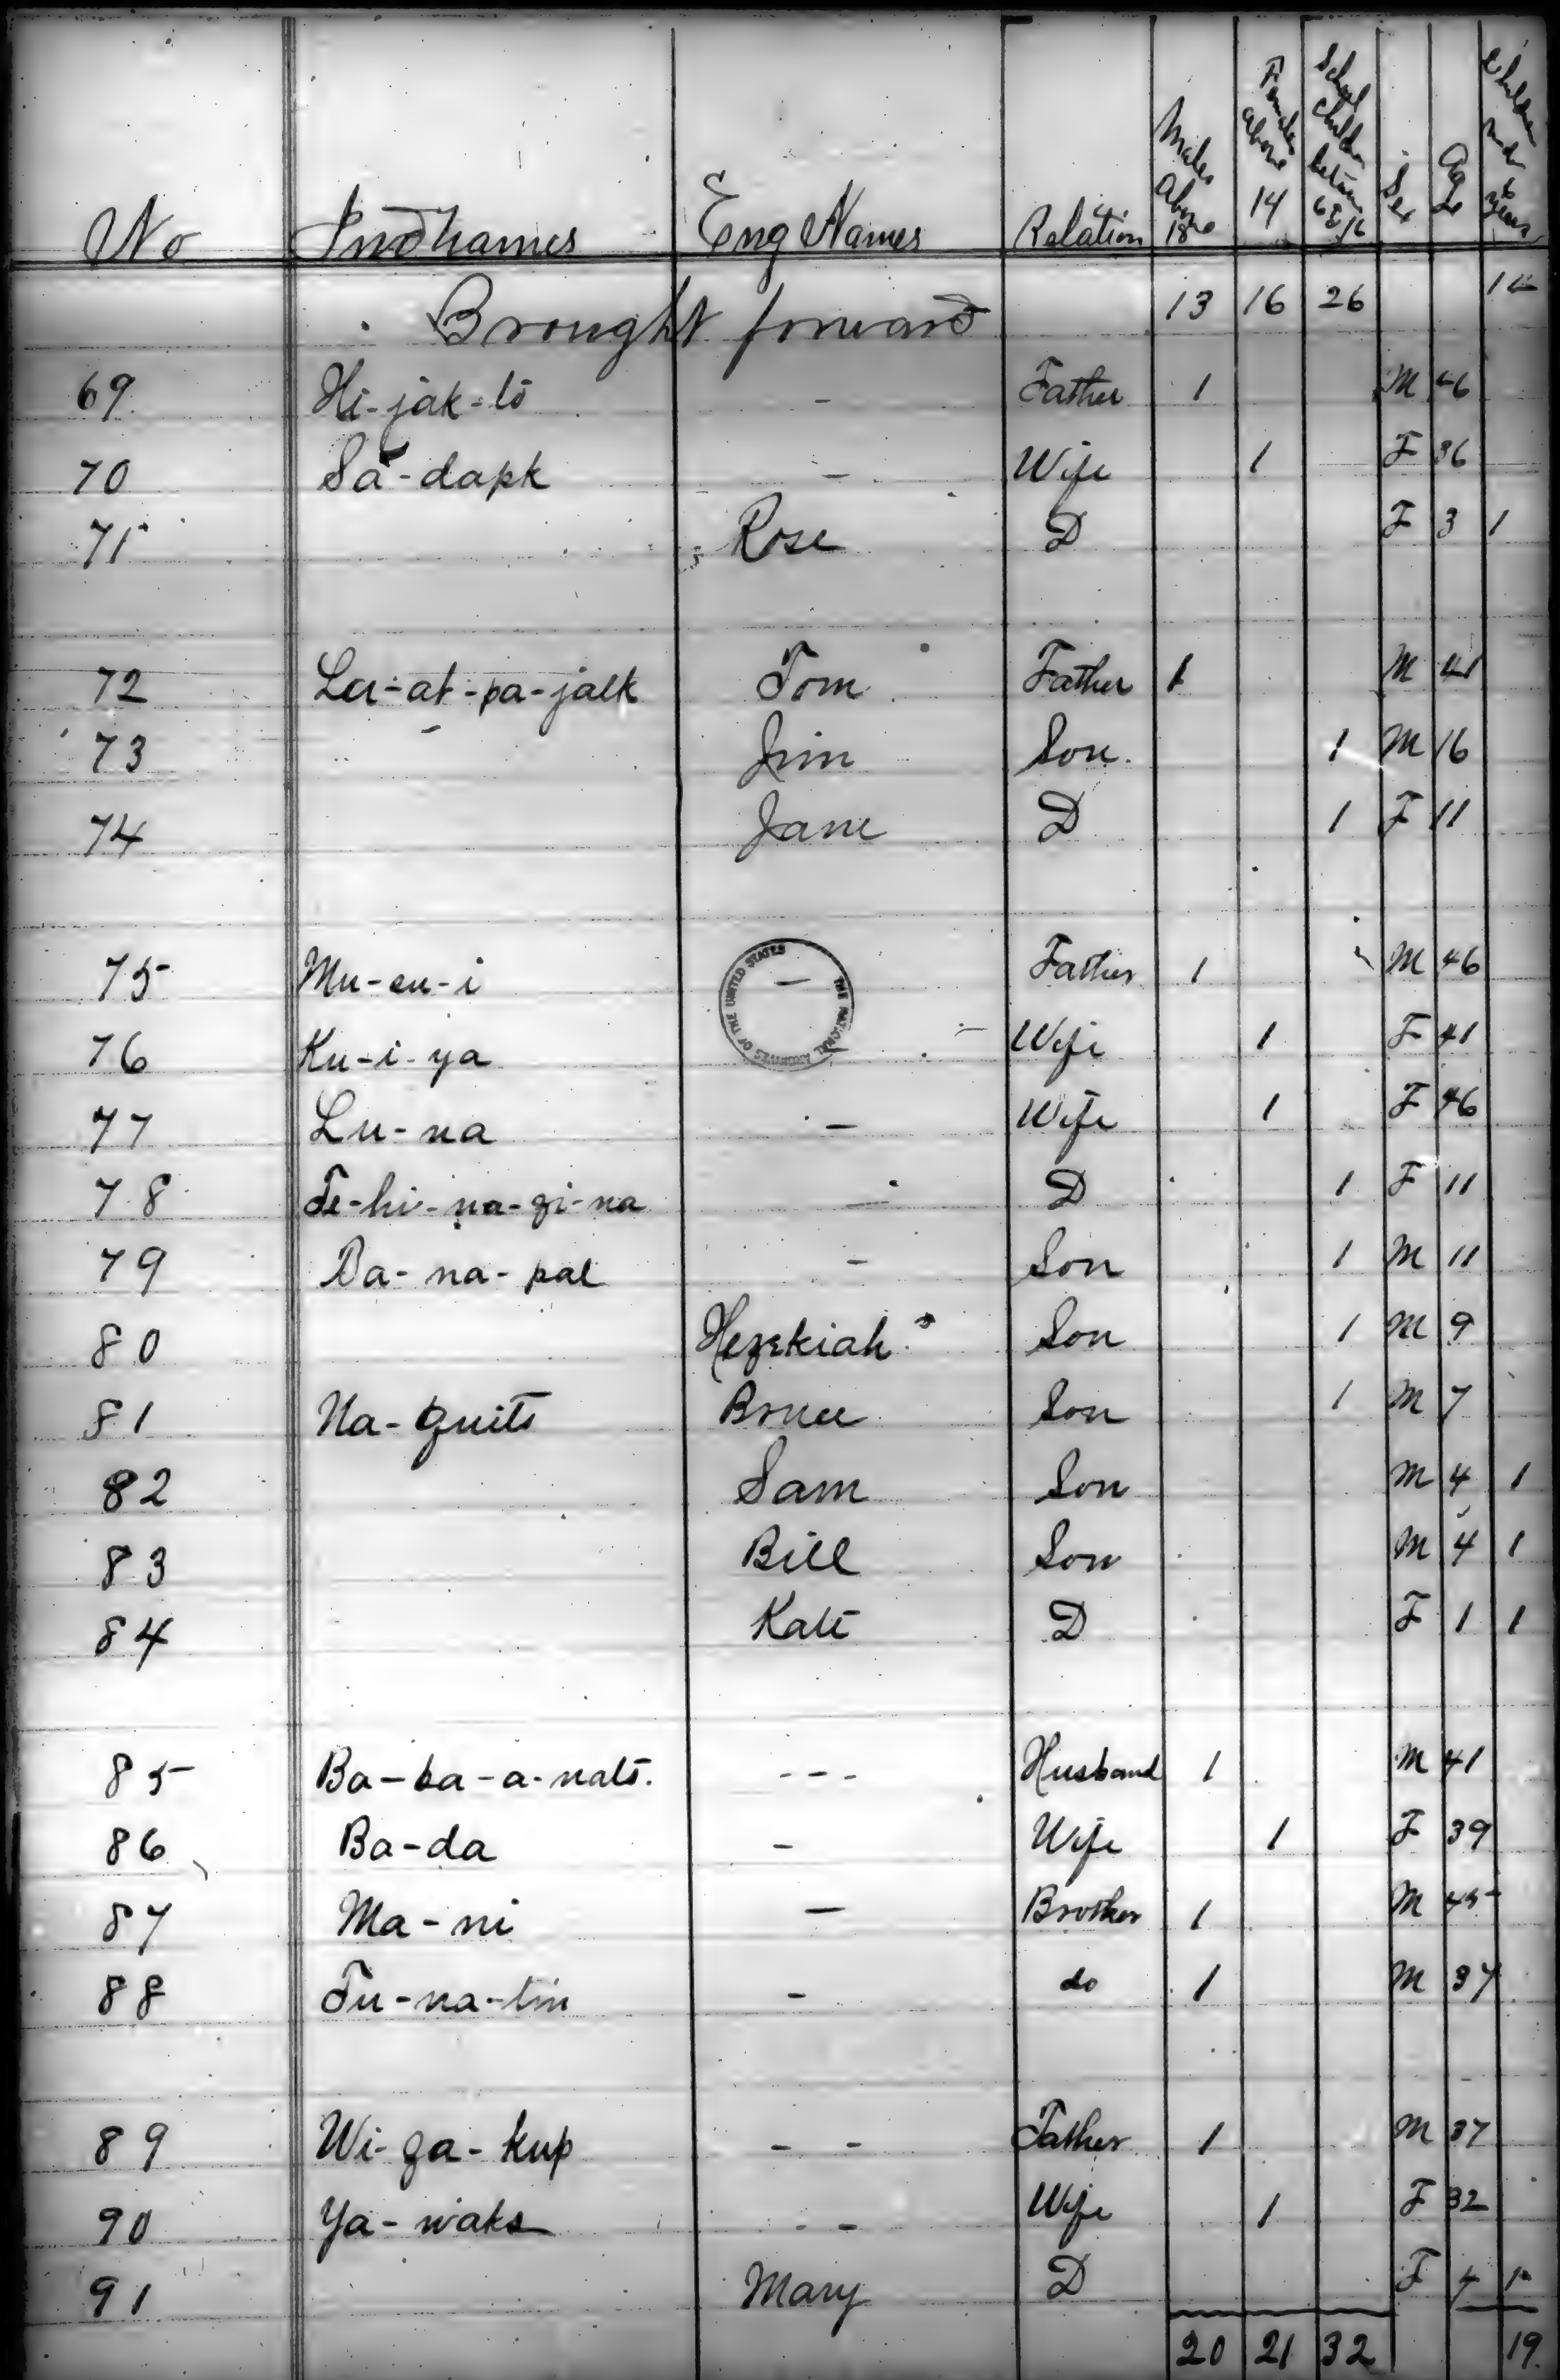 No Ind names Eng Names Relation Males above 18 Females above 14 School children between 6 & 16 Sex Age Children under 6 years
Brought forward 13 16 26 14
69 Hi-jak-to - Father 1 M 46
70 Sa-dapk - Wife 1 F 36
71 Rose D F 3 1
72 La-at-pa-jalk Tom Father 1 M 41
73 Jim Son 1 M 16
74 Jane D 1 F 11
75 Mu-eu-i - Father 1 M 46
THE NATIONAL ARCHIVES OF THE UNITED STATES
76 Ku-i-ya - Wife 1 F 41
77 Lu-na - Wife 1 F 46
78 Te-hi-na-zi-na - D 1 F 11
79 Da-na-pal - Son 1 M 11
80 Hezekiah Son 1 M 9
81 Na-quits Bruce Son 1 M 7
82 Sam Son M 4 1
83 Bill Son M 4 1
84 Kate D F 1 1
85 Ba-ba-a-nats. --- Husband 1 M 41
86 Ba-da - Wife 1 F 39
87 Ma-ni - Brother 1 M 45
88 Tu-na-tin - do 1 M 37
89 Wi-za-kup -- Father 1 M 37
90 Ya-waks -- Wife 1 F 32
91 Mary D F 4 1
20 21 32 19